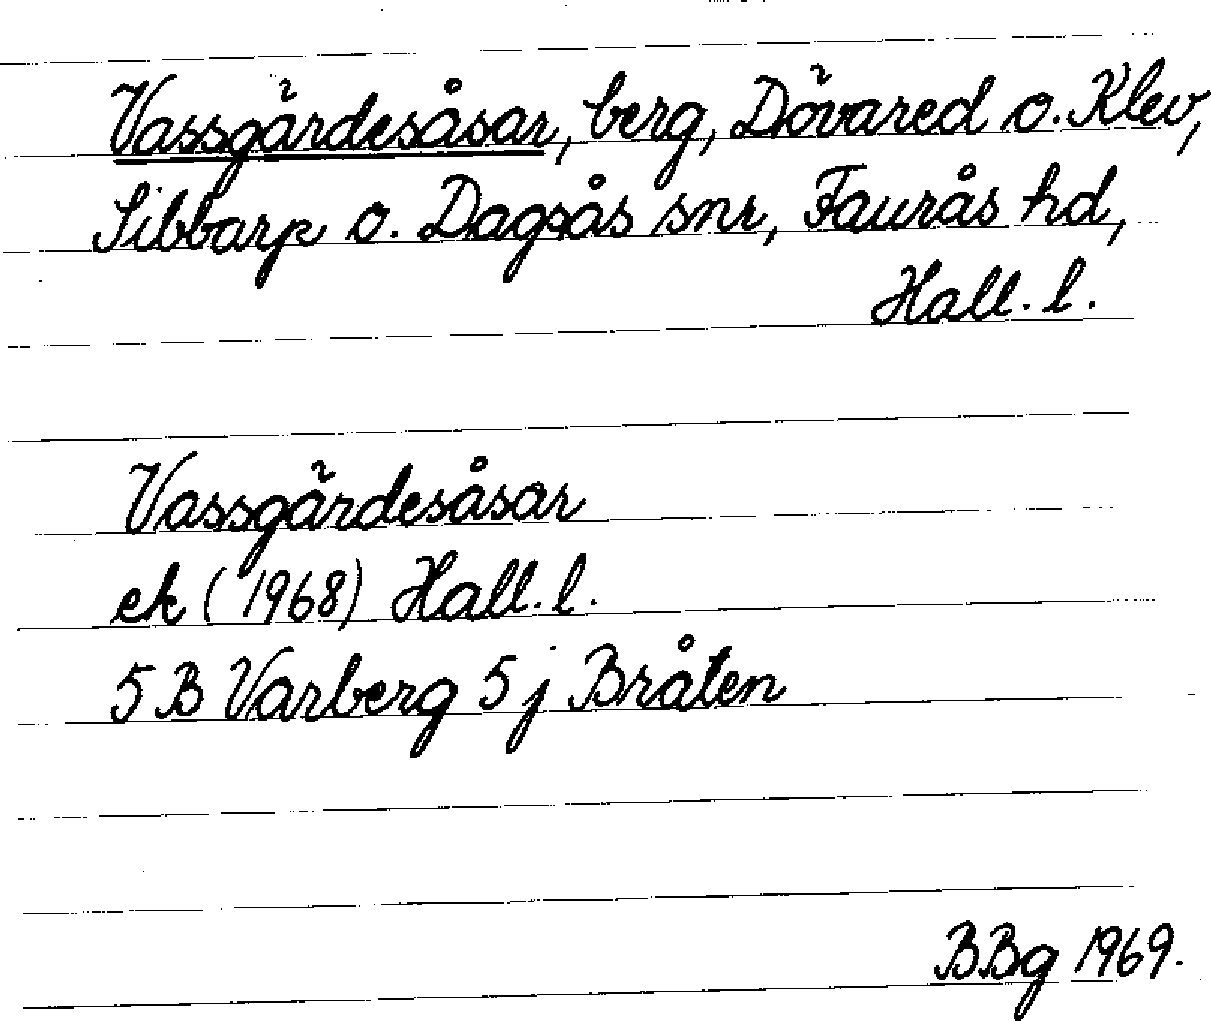 Vassgärdesåsar, berg, Dövared o. Klev,
Sibbarp o. Dagsås snr, Faurås hd,
Hall. l.
Vassgärdesåsar
ek (1968) Hall. l.
5 B Varberg 5 j Bråten
BBg 1969.